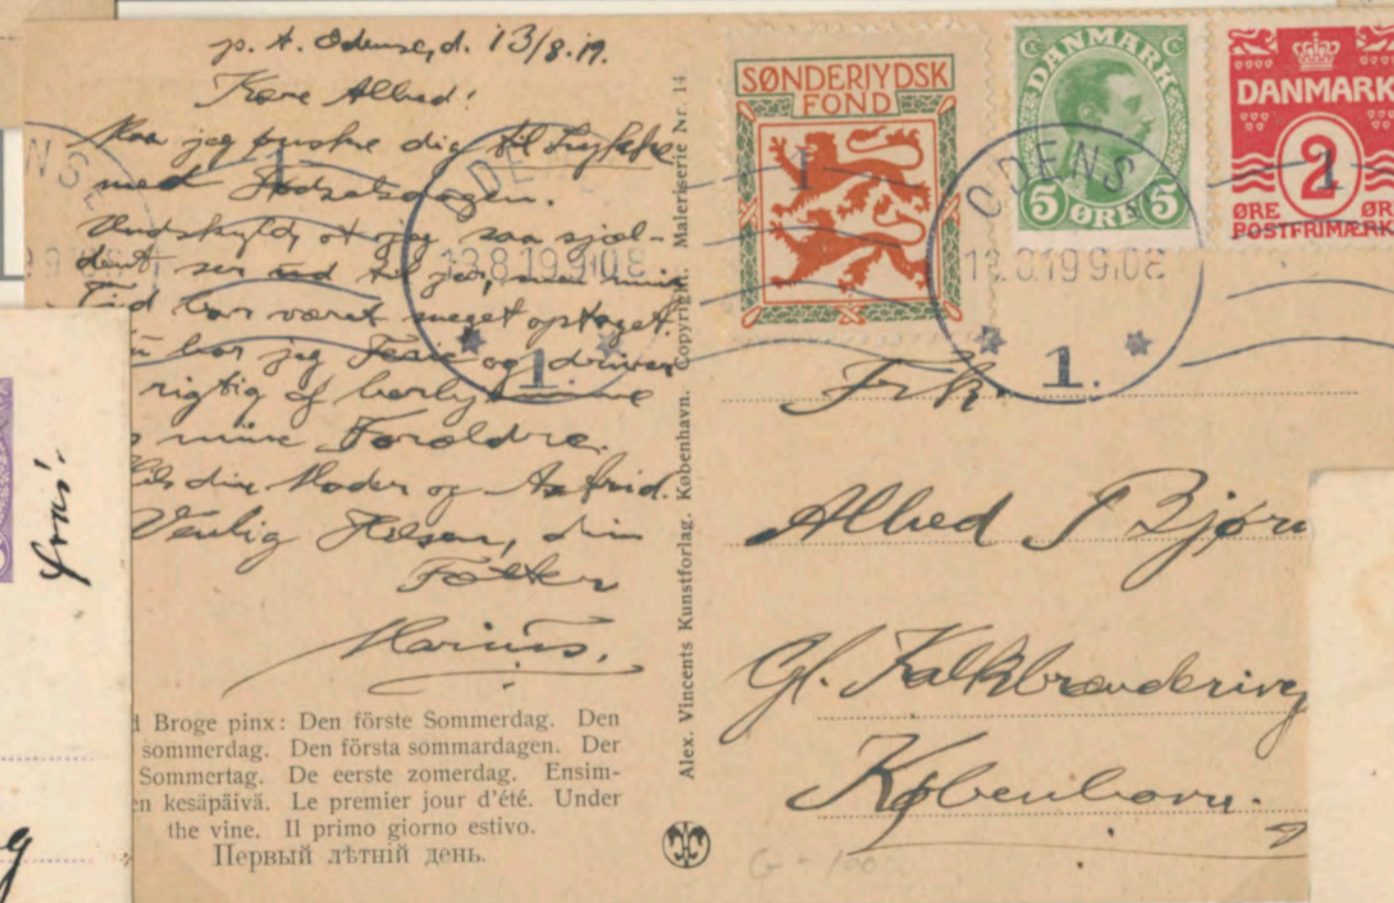 p. t. Odense, d. 13/8.19.
Kære Alhed!
Maa jeg ønske dig til Lykke
med Fødselsdagen.
Undskyld, at jeg saa sjæl-
dent ser ud til jer, men min
Tid har været meget optaget.
har jeg Ferie og driver
rigtig af her hjemme
mine Forældre.
Hils din Moder og Astrid.
Venlig Hilsen, din
Fætter
Marius.
d Broge pinx: Den förste Sommerdag. Den
sommerdag. Den första sommardagen. Der
Sommertag. De eerste zomerdag. Ensim-
en kesäpäivä. Le premier jour d'été. Under
the vine. Il primo giorno estivo.
Первый лѣтній день.
Alex. Vincents Kunstforlag. København. Copyright. Maleriserie Nr. 14
SØNDERJYDSK
FOND
DANMARK
5 ØRE 5
DANMARK
2
ØRE ØR
POSTFRIMÆRK
ODENS
13.8.19 9-10 E
1.
ODENS
13.8.19 9-10 E
1.
Frk.
Alhed Bjørn
Gl. Kalkbrænderivej
København.
G - 100
frvs!
g